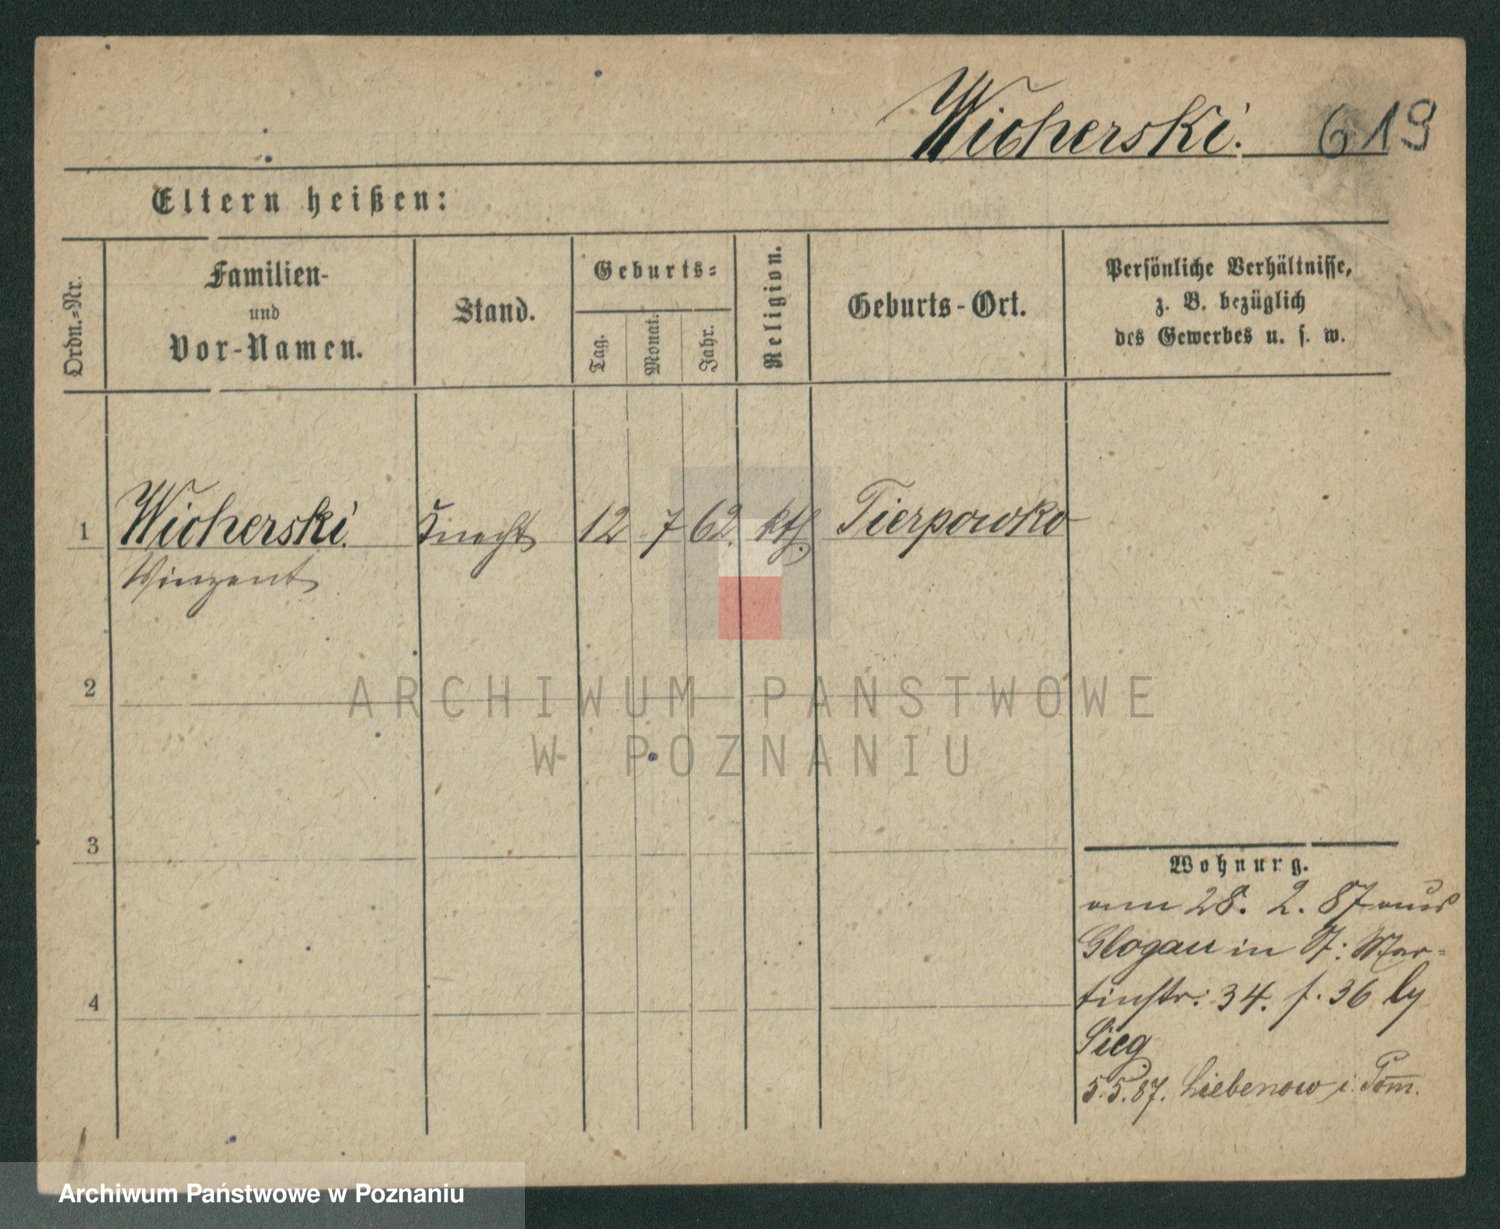 Wicherski. 619
Eltern heißen:
Ordn.-Nr.
Familien-
und
Vor-Namen.
Stand.
Geburts-
Tag.
Monat.
Jahr.
Religion.
Geburts-Ort.
Persönliche Verhältnisse,
z. B. bezüglich
des Gewerbes u. s. w.
1 Wicherski Knecht 12 7 62. kth. Tierpowko
Vinzent
2
ARCHIWUM PAŃSTWOWE
W POZNANIU
3
4
Wohnung.
am 28. 2. 87 aus
Glogau in St: Mar-
tinstr: 34. f. 36 by
Sieg
5.5.87. Liebenow i. Pom.
Archiwum Państwowe w Poznaniu